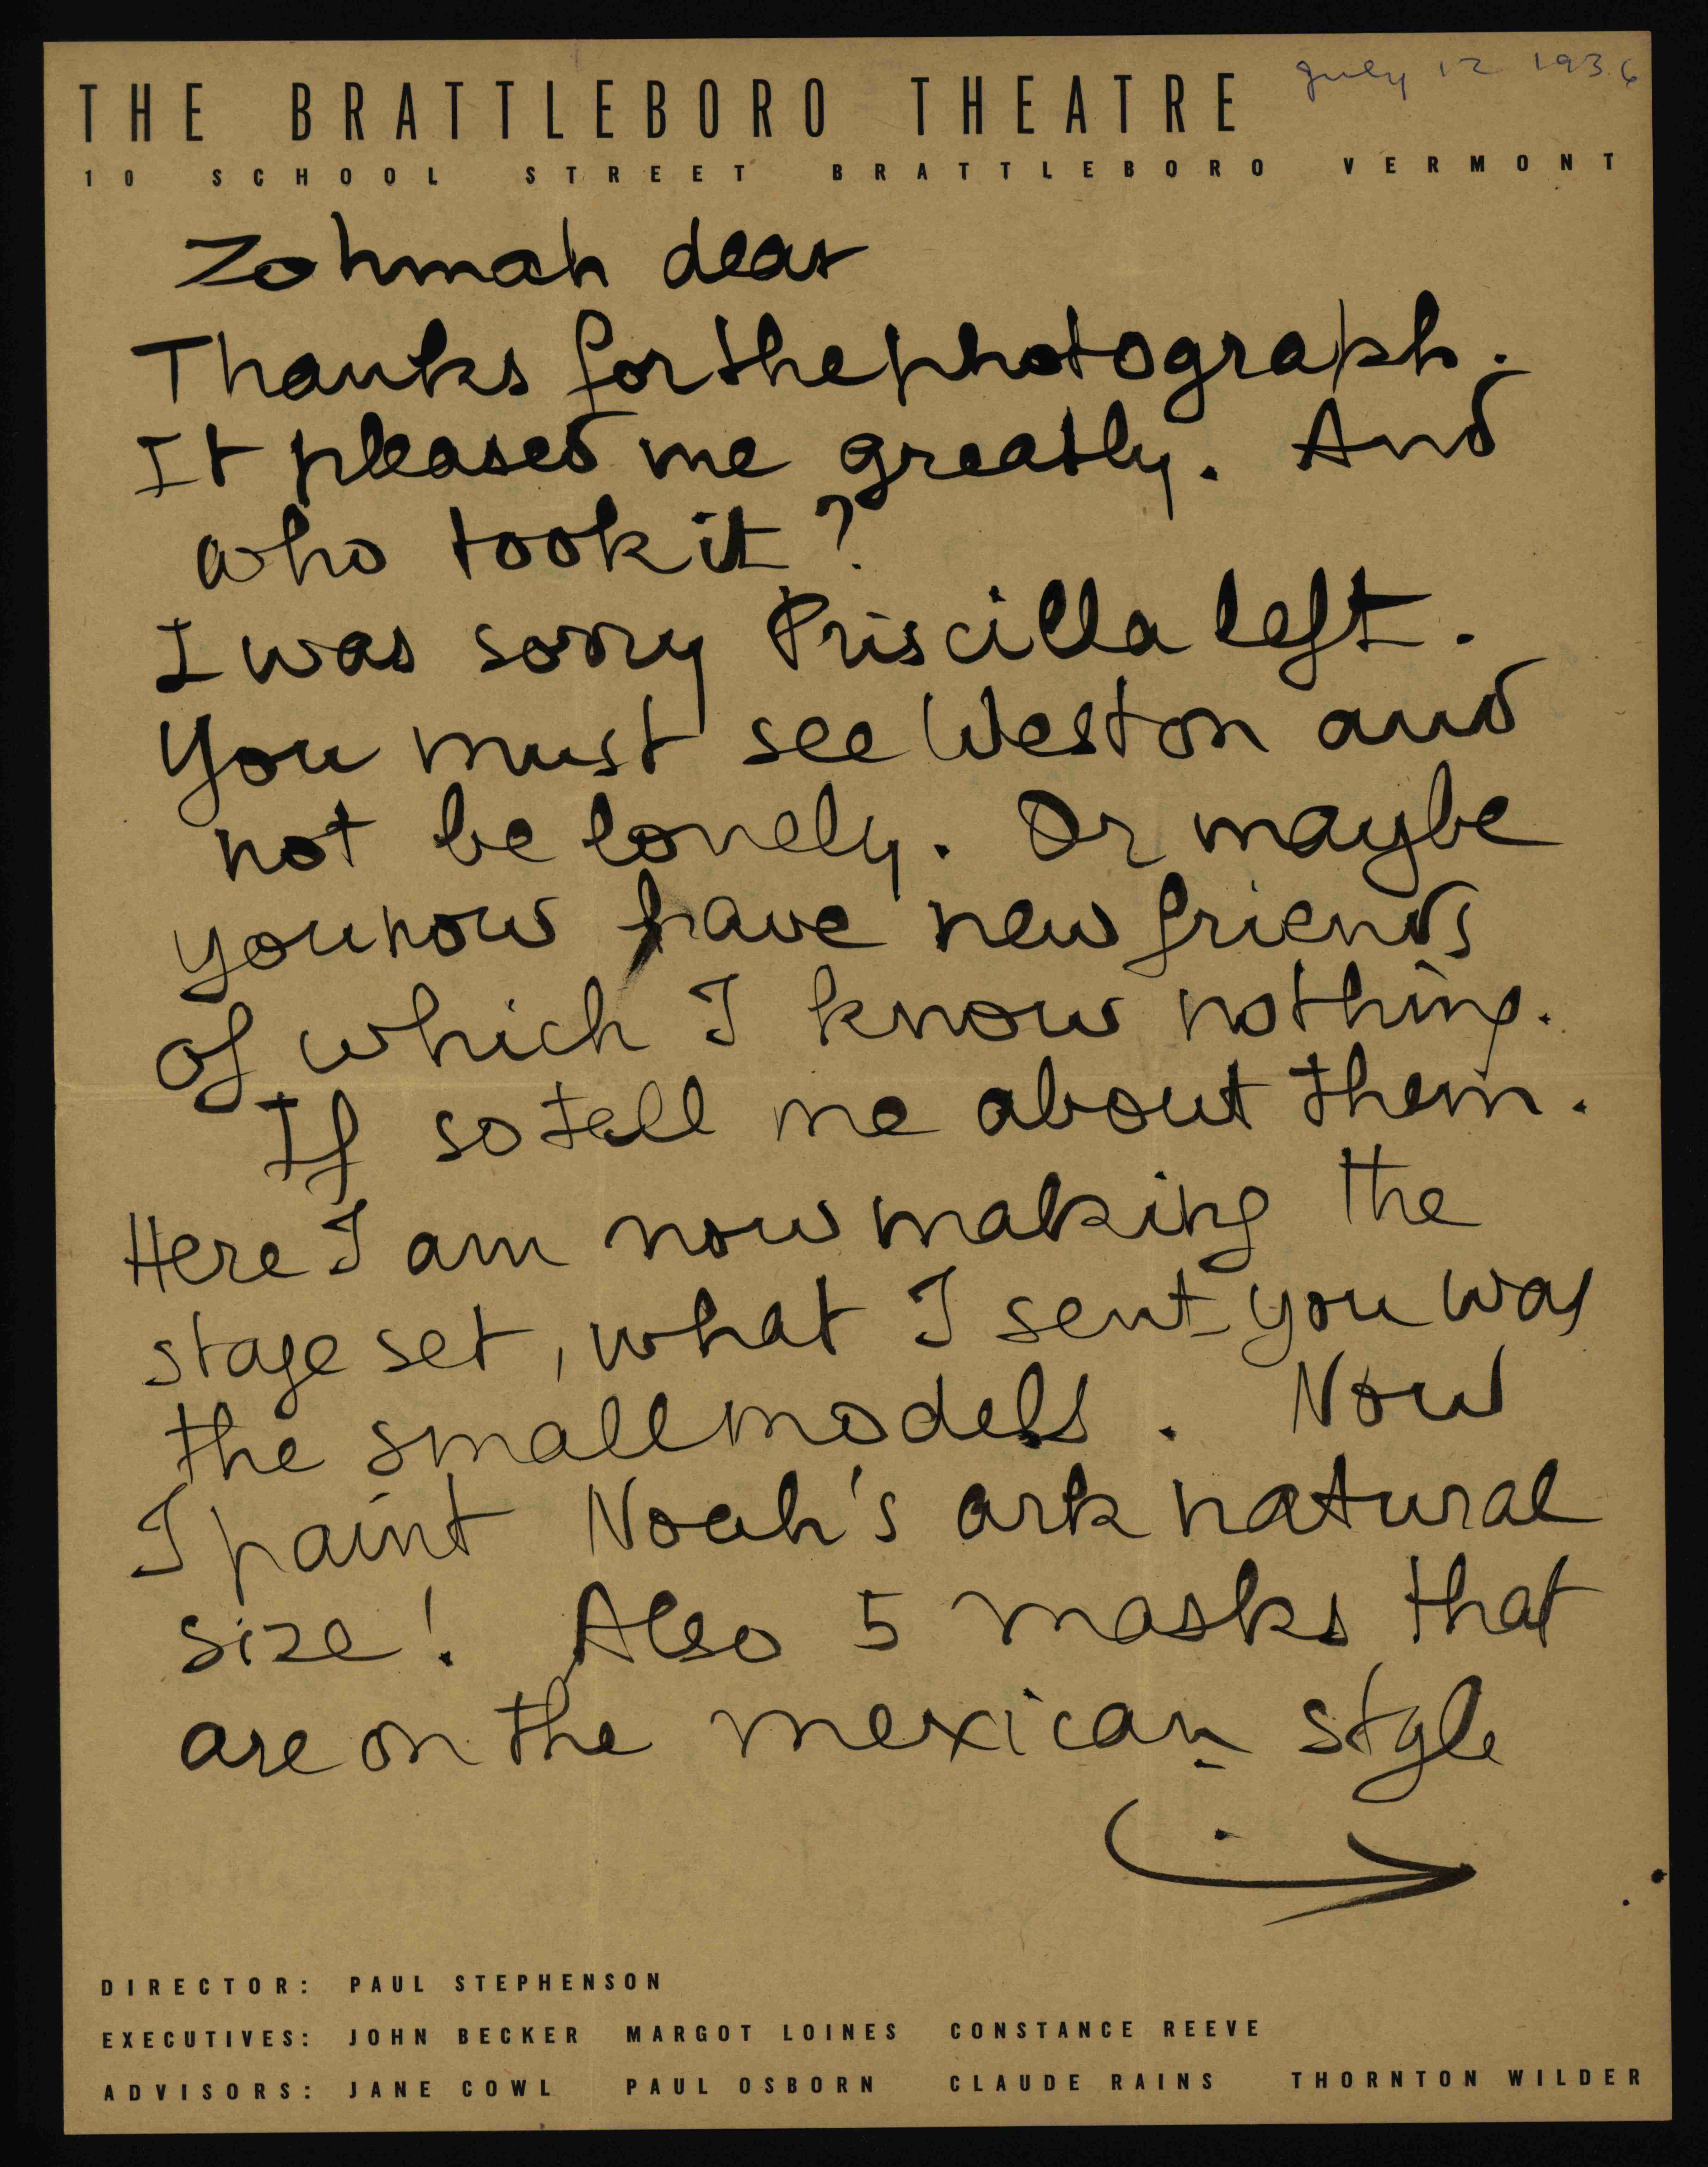 July 12 1936
THE BRATTLEBORO THEATRE
10 SCHOOL STREET BRATTLEBORO VERMONT
Zohmah dear
Thanks for the photograph.
It pleased me greatly. And
who took it?
I was sorry Priscilla left.
You must see Weston and
not be lonely. Or maybe
you now have new friends
of which I know nothing.
If so tell me about them.
Here I am now making the
stage set, what I sent you was
the small models. Now
I paint Noah's ark natural
size! Also 5 masks that
are on the mexican style
DIRECTOR: PAUL STEPHENSON
EXECUTIVES: JOHN BECKER MARGOT LOINES CONSTANCE REEVE
ADVISORS: JANE COWL PAUL OSBORN CLAUDE RAINS THORNTON WILDER